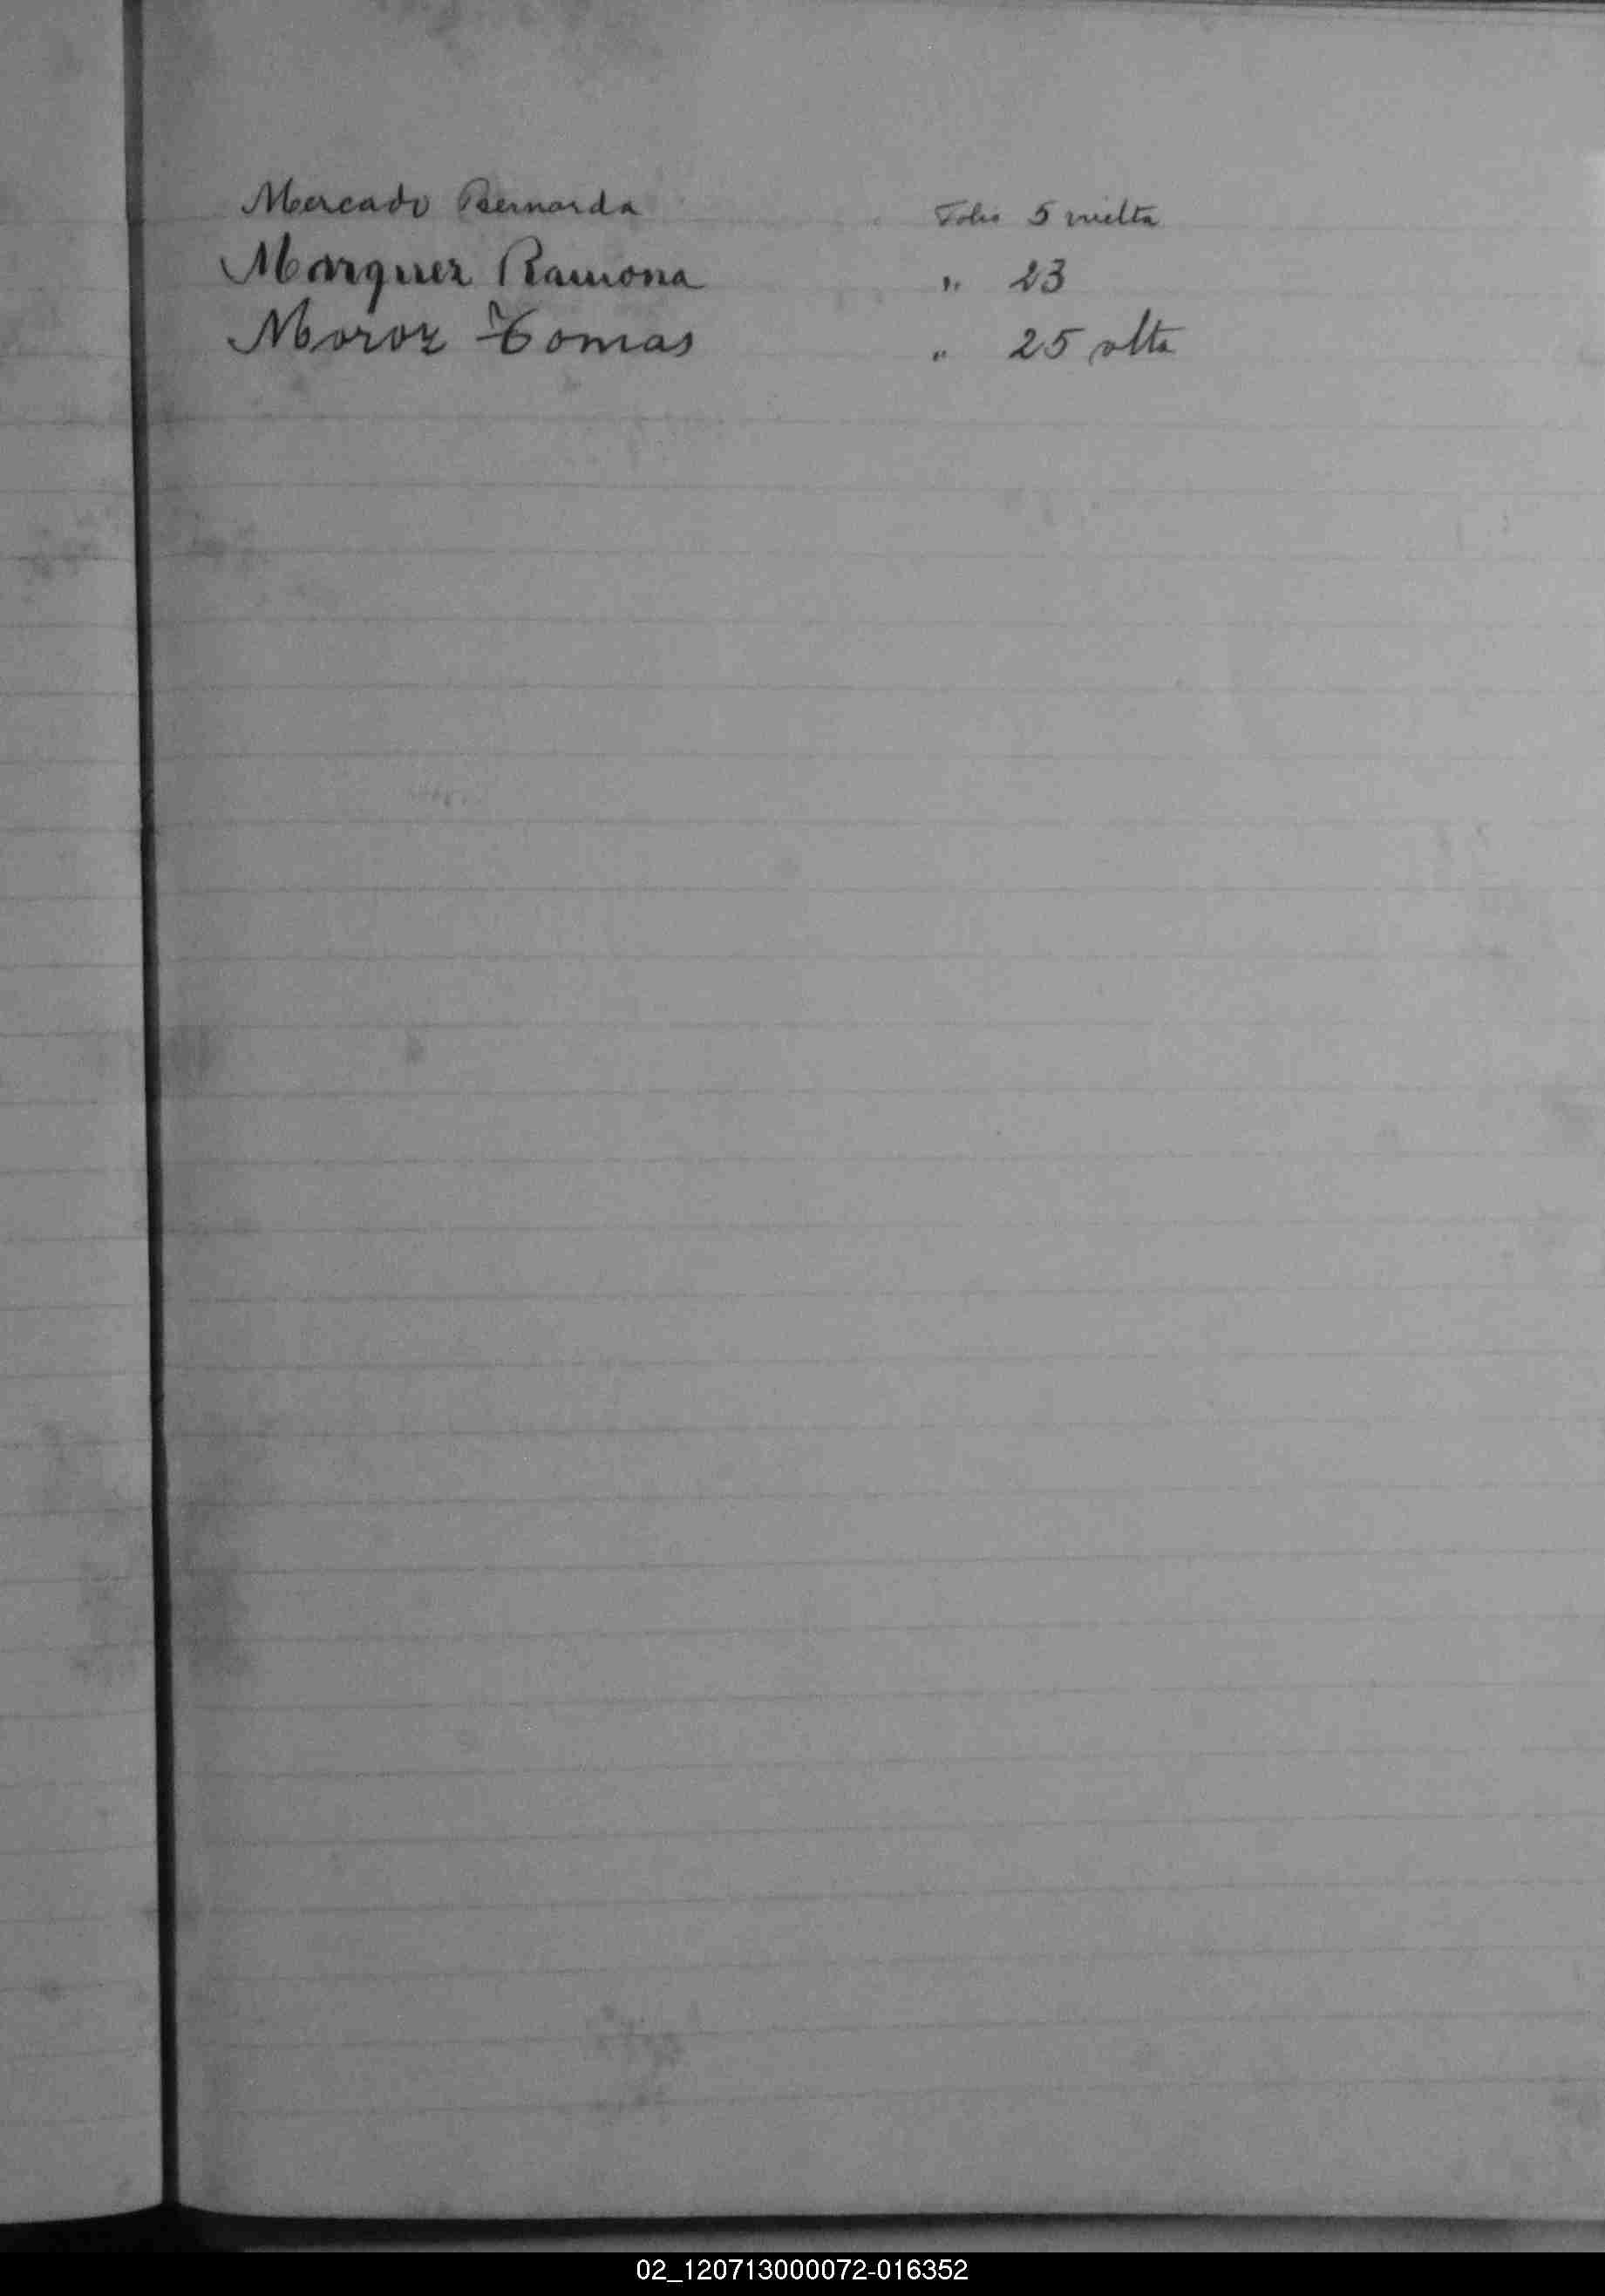 Mercado Bernarda Folio 5 vuelta
Marquez Ramona " 23
Moroz Tomas " 25 vlta
02_120713000072-016352